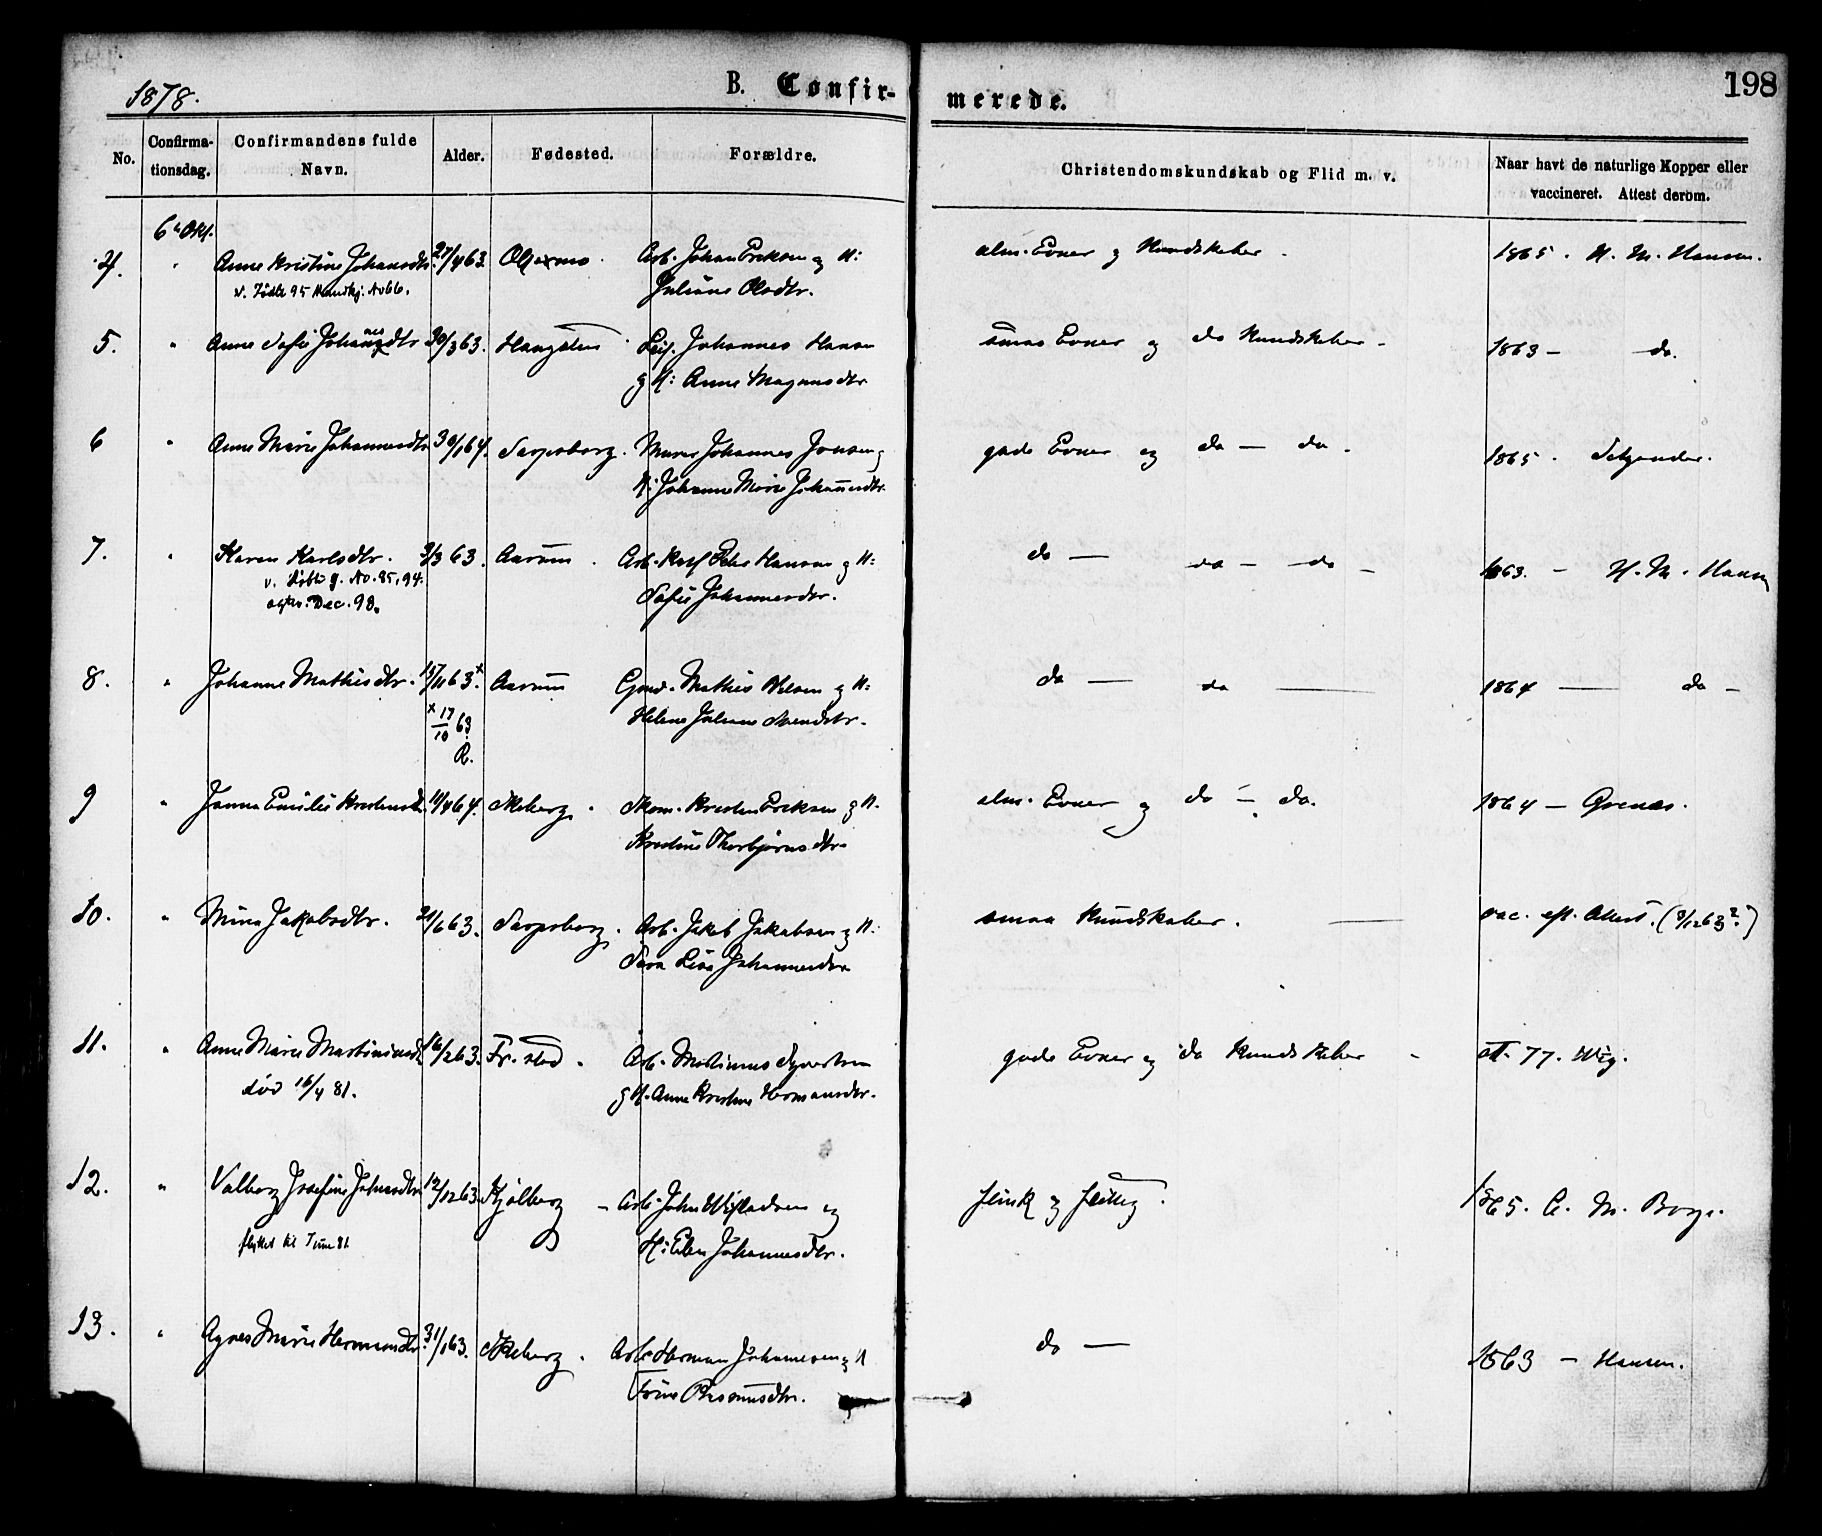 1878.
B. Confir-
merede.
198
No.
Confirma-
tionsdag.
Confirmandens fulde
Navn.
Alder.
Fødested.
Forældre.
Christendomskundskab og Flid m. v.
Naar havt de naturlige Kopper eller
vaccineret. Attest derom.
6te Okt.
4. " Anne Kristine Johansdtr. 27/4 63. Arb. Johan Eriksen og H: alm. Evner og Kundskaber. 1865. H. M. Hansen.
Juliane Olsdtr.
5. " Anne Sofie Johannesdtr 30/3 63. Leif. Johannes Hansen smaa Evner og do Kundskaber - 1863 - do.
g H: Anne Magnusdtr
6 " Anne Marie Johannesdtr 30/1 64. Sarpsborg. Murer Johannes Jonsen g gode Evner og do - do. 1865.
H: Johanne Marie Johannesdtr.
7. " Karen Karlsdtr. 3/3 63. Aarum. Arb. Karl Peter Hansen g H: do - do - do - 1863. - H. M. Hansen
Sofie Johannesdtr.
Dec. 98.
8. " Johanne Mathisdtr. 17/11 63. x Aarum Gmd. Mathis Nilsen g H: do - do - 1864 - do -
Helene Juliane Svendsdtr.
x 17/10 63.
R.
9 " Janna Emilie Kristensd. 11/4 64. Skeberg. Skom. Kristen Eriksen g H. alm. Evner og do - do. 1864 - Grenæs.
Kristine Thorbjørnsdtr.
10. " Mina Jakobsdtr. 21/6 63. Sarpsborg. Arb. Jakob Jakobsen g H: smaa Kundskaber. vac. eft. Attest. (9/12 63?)
Sara Lisa Johannesdtr
11. " Anne Marie Martiniusd. 16/2 63. Fr.stad. Arb. Syvertsen gode Evner og do Kundskaber - att. 77.
død 16/4 81. g H. Anne Kristine Hermansdtr.
12. " Valborg Josefine Johansdtr 12/12 63. Kjølberg - Arb. Johan og flink og flittig. 1865. C. M. Borge.
flyttet til Tune 81. H: Ellen Johannesdtr.
13. " Agnes Marie Hermansdtr. 31/1 63. Skeberg. Arb. Herman Johannesen g H do - 1863 - Hansen.
Trine Rasmusdtr.